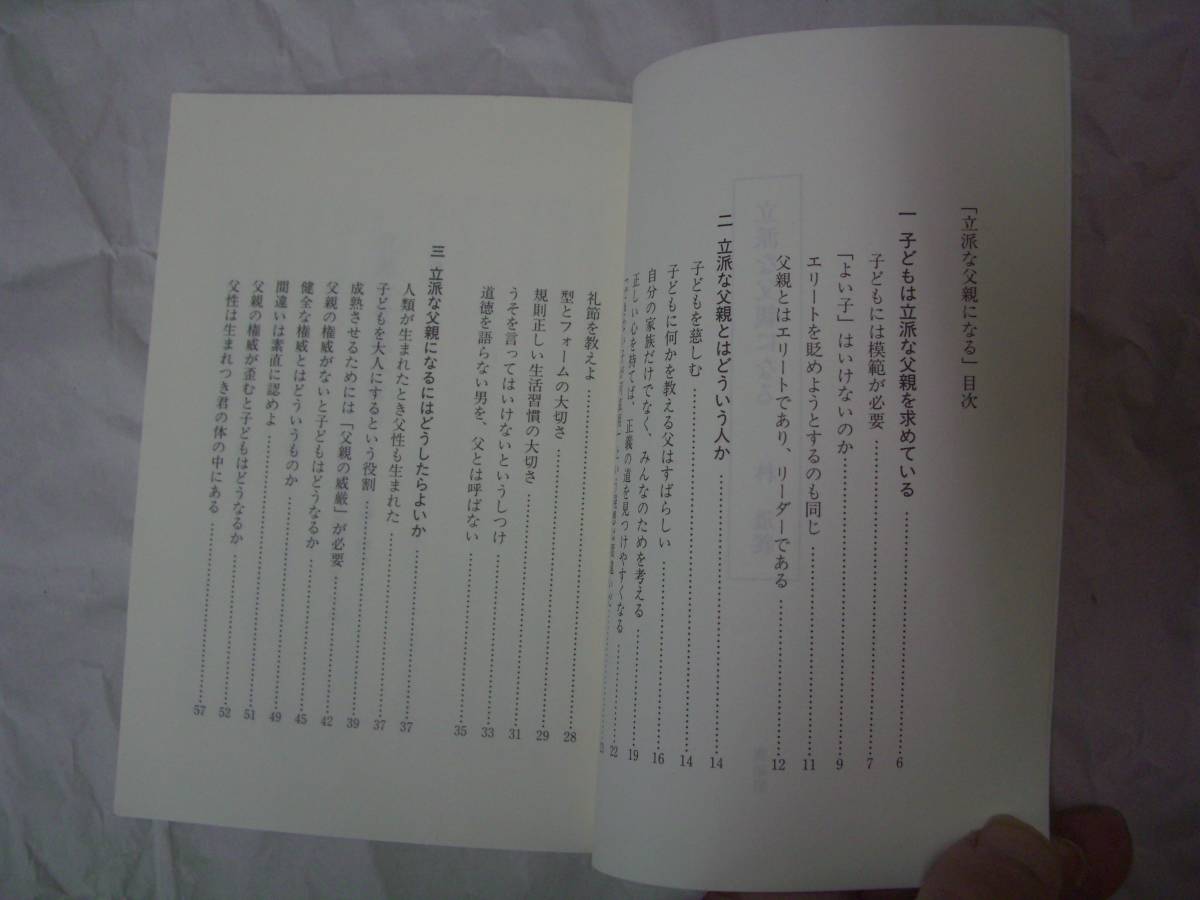 「立派な父親になる」目次
一 子どもは立派な父親を求めている……6
子どもには模範が必要……7
「よい子」はいけないのか……9
エリートを貶めようとするのも同じ……11
父親とはエリートであり、リーダーである……12
二 立派な父親とはどういう人か……14
子どもを慈しむ……14
子どもに何かを教える父はすばらしい……16
自分の家族だけでなく、みんなのためを考える……19
正しい心を持てば、正義の道を見つけやすくなる……22
礼節を教えよ……28
型とフォームの大切さ……29
規則正しい生活習慣の大切さ……31
うそを言ってはいけないというしつけ……33
道徳を語らない男を、父とは呼ばない……35
三 立派な父親になるにはどうしたらよいか……37
人類が生まれたとき父性も生まれた……37
子どもを大人にするという役割……39
成熟させるためには「父親の威厳」が必要……42
父親の権威がないと子どもはどうなるか……45
健全な権威とはどういうものか……49
間違いは素直に認めよ……51
父親の権威が歪むと子どもはどうなるか……52
父性は生まれつき君の体の中にある……57